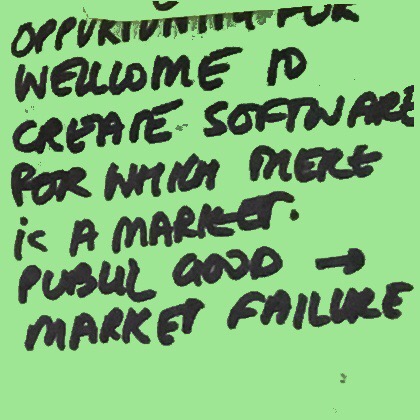 OPPURTUNITY FOR
WELLCOME TO
CREATE SOFTWARE
FOR WHICH THERE
is A MARKET.
PUBLIC GOOD →
MARKET FAILURE